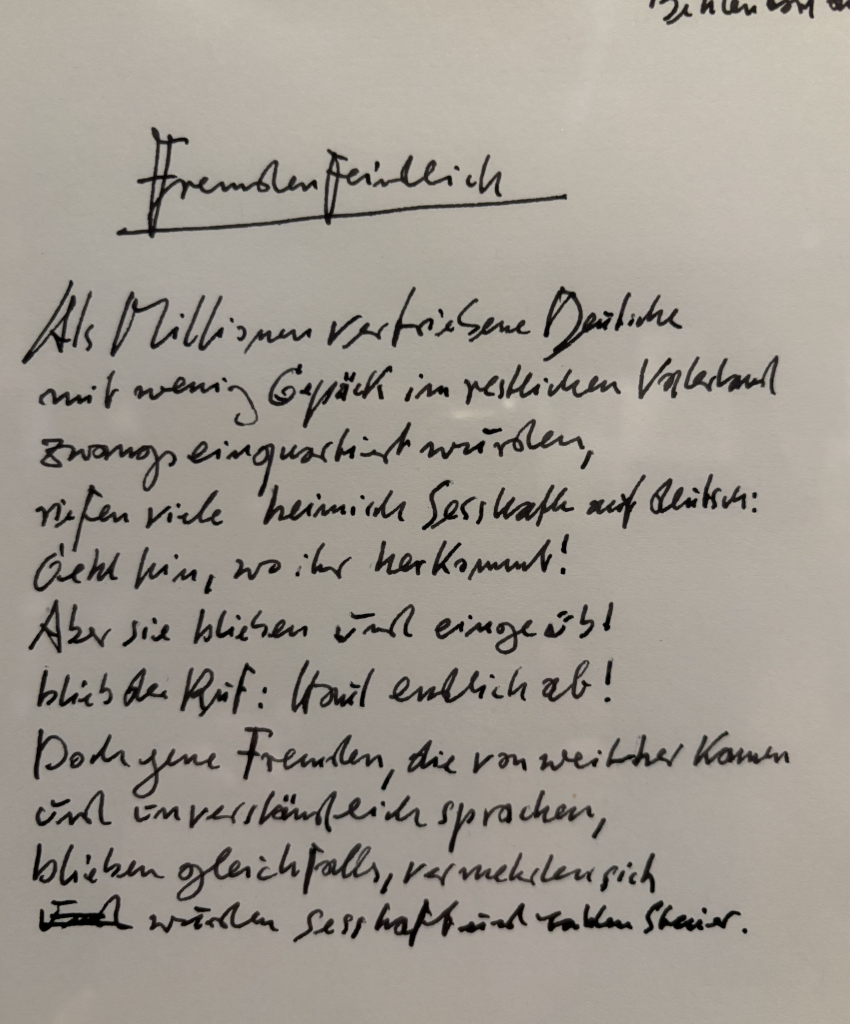 Fremdenfeindlich
Als Millionen vertriebene Deutsche
mit wenig Gepäck im restlichen Vaterland
zwangseinquartiert wurden,
riefen viele heimisch Sesshafte auf deutsch:
Geht hin, wo ihr herkommt!
Aber sie blieben und eingeübt
blieb der Ruf: Haut endlich ab!
Doch jene Fremden, die von weither kamen
und unverständlich sprachen,
blieben gleichfalls, vermehrten sich
wurden sesshaft und zahlen Steuer.